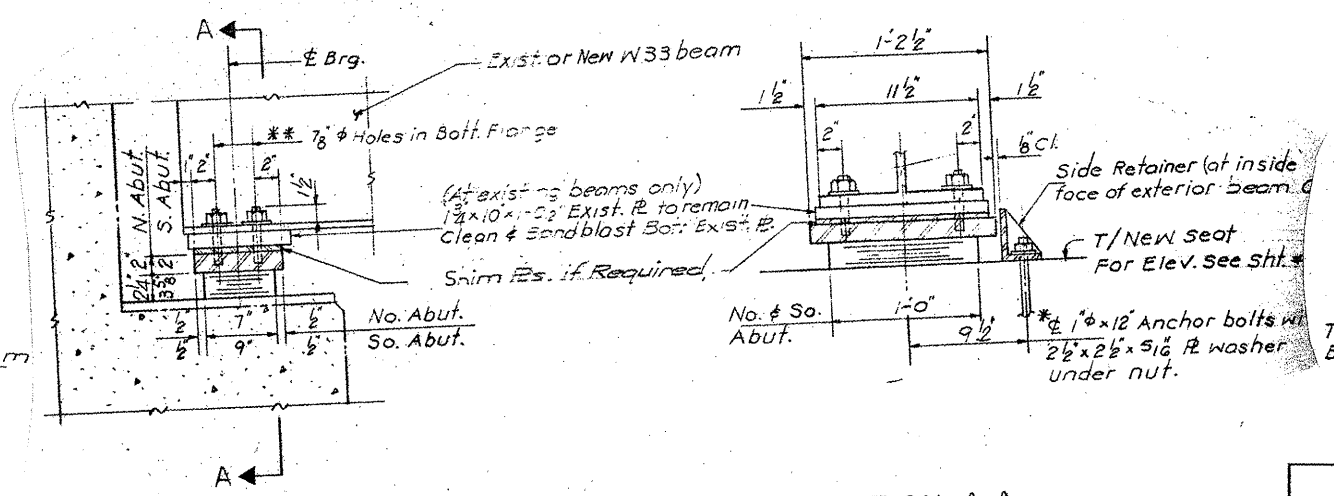 A
℄ Brg.
Exist. or New W33 beam
** 7/8" φ Holes in Bott. Flange
N. Abut.
S. Abut.
2"
2"
1 1/2"
(At existing beams only)
Exist. ℙ to remain
Clean & Sandblast Bott. Exist. ℙ.
Shim ℙs. if Required
2 1/4"
2"
2"
1/2"
7"
1/2"
No. Abut.
1/2"
9"
1/2"
So. Abut.
A
1'-2 1/2"
1 1/2"
11 1/2"
1 1/2"
2"
2"
1/8" Cl.
Side Retainer (at inside
face of exterior beam
T/New seat
For Elev. See Sht.
No. & So.
Abut.
1'-0"
9 1/2"
*℄ 1"φ x 12" Anchor bolts
2 1/2" x 2 1/2" x 5/16" ℙ washer
under nut.